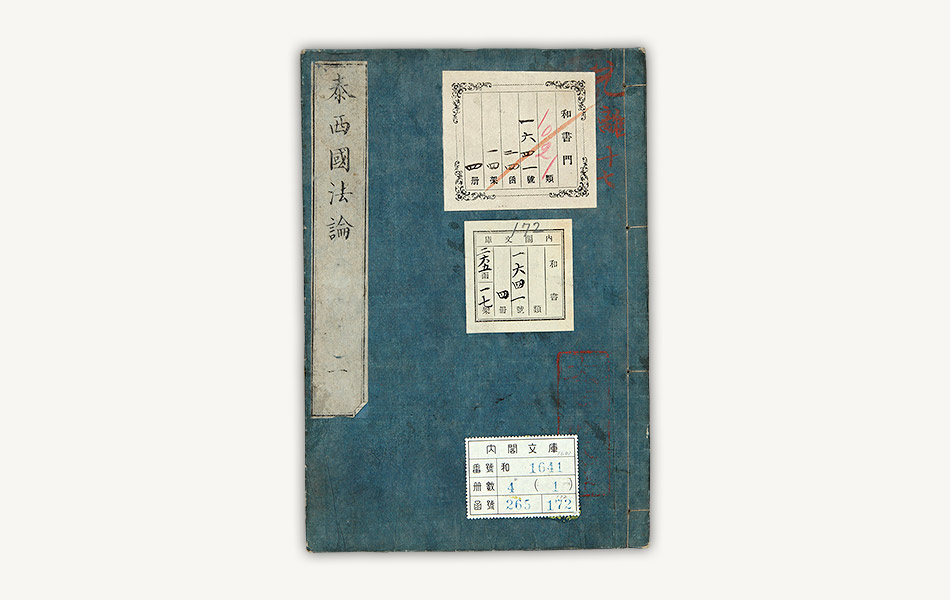 泰西國法論
二
和書門
類
一六四一號
二四函
一四架
四册
10801
172
內閣文庫
和書
類
一六四一號
四冊
二六五函
一七架
內閣文庫
番號 和 1641
册數 4 ( 1 )
函號 265 172